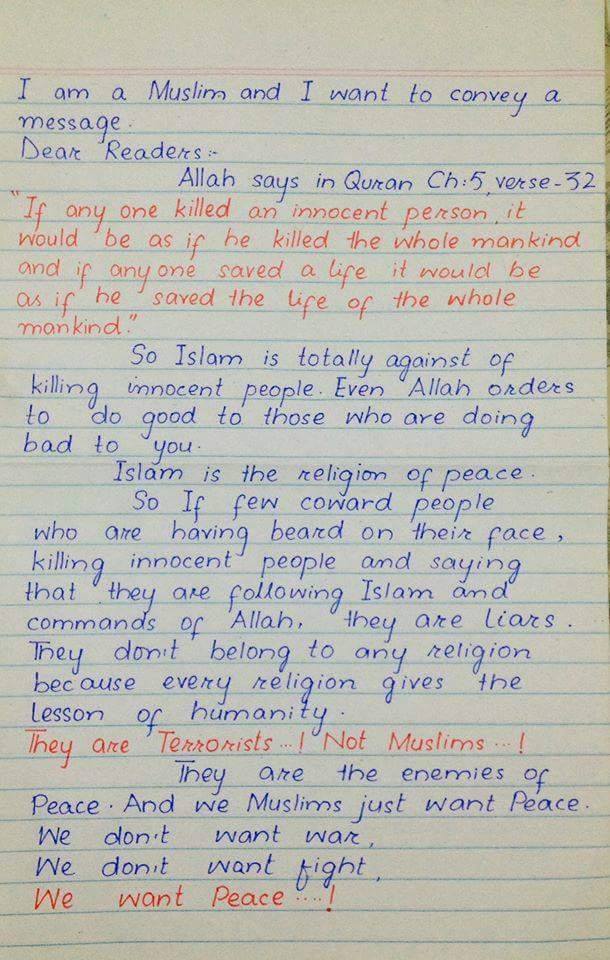 I am a Muslim and I want to convey a
message.
Dear Readers:-
Allah says in Quran Ch:5, verse-32
"If any one killed an innocent person, it
would be as if he killed the whole mankind
and if any one saved a life it would be
as if he saved the life of the whole
mankind."
So Islam is totally against of
killing innocent people. Even Allah orders
to do good to those who are doing
bad to you.
Islam is the religion of peace.
So If few coward people
who are having beard on their face,
killing innocent people and saying
that they are following Islam and
commands of Allah, they are liars.
They don't belong to any religion
because every religion gives the
lesson of humanity.
They are Terrorists...! Not Muslims...!
They are the enemies of
Peace. And we Muslims just want Peace.
We don't want war,
We don't want fight,
We want Peace....!